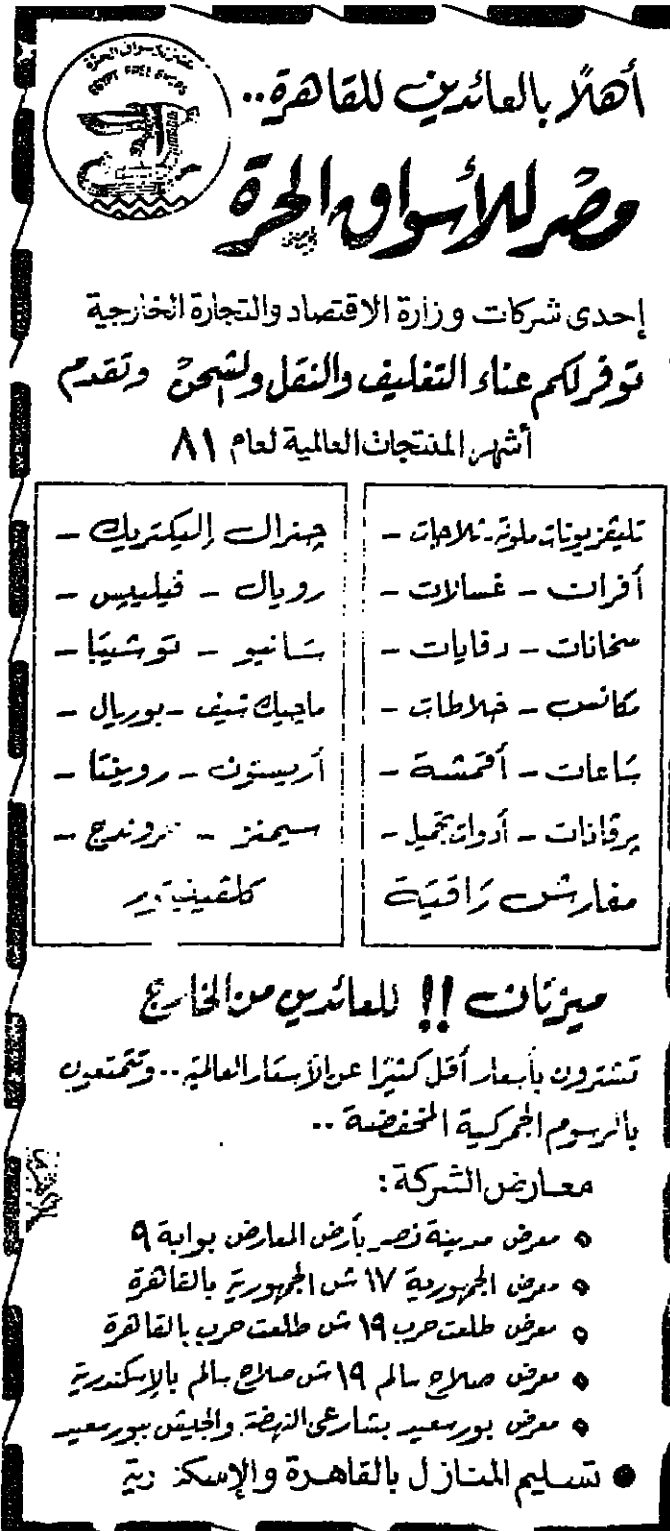 مصر للأسواق الحرة
EGYPT FREE SHOPS
أهلًا بالعائدين للقاهرة..
مصر للأسواق الحرة
إحدى شركات وزارة الاقتصاد والتجارة الخارجية
توفر لكم عناء التغليف والنقل والشحن وتقدم
أشهر المنتجات العالمية لعام ٨١
تليفزيونات ملونة - ثلاجات -
أفران - غسالات -
سخانات - دفايات -
مكانس - خلاطات -
ساعات - أقمشة -
برفانات - أدوات تجميل -
مفارش راقية
چنرال إليكتريك -
رويال - فيليبس -
سانيو - توشيبا -
ماچيك شيف - بوريال -
أريستون - روينتا -
سيمنز - جروندج -
كلفينيتور
ميزتان !! للعائدين من الخارج
تشترون بأسعار أقل كثيرًا عن الأسعار العالمية .. وتتمتعون
بالرسوم الجمركية المخفضة ..
معارض الشركة :
معرض مدينة نصر بأرض المعارض بوابة ٩
معرض الجمهورية ١٧ ش الجمهورية بالقاهرة
معرض طلعت حرب ١٩ ش طلعت حرب بالقاهرة
معرض صلاح سالم ١٩ ش صلاح سالم بالإسكندرية
معرض بورسعيد بشارعى النهضة والجيش ببورسعيد
تسليم المنازل بالقاهرة والإسكندرية